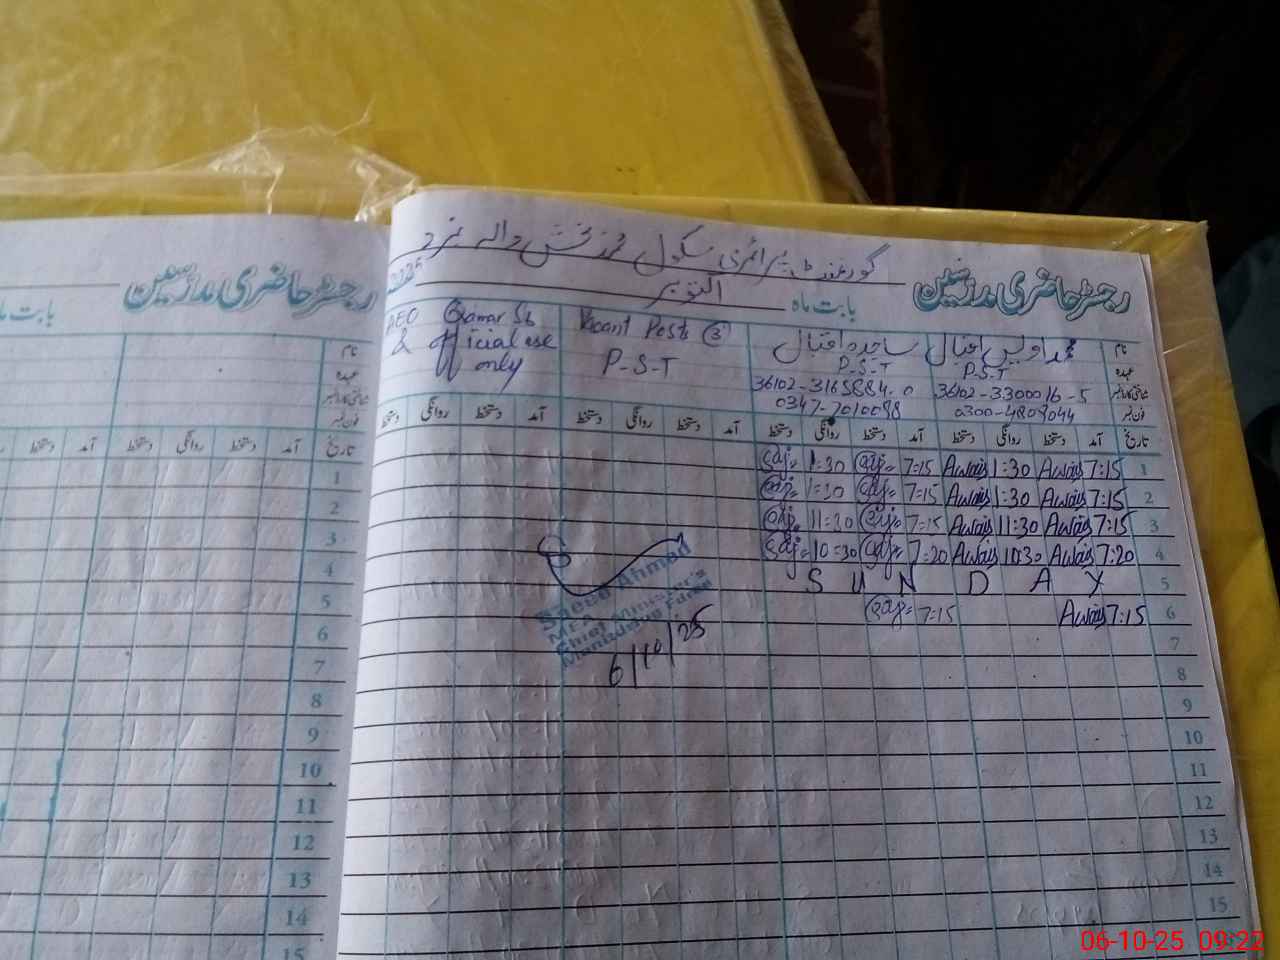 رجسٹر حاضری مدرسین
گورنمنٹ پرائمری سکول
بابت ماہ اکتوبر 2025
نام محمد اویس اقبال ساجدہ اقبال Vacant Posts 3 AEO Qamar Sb
عہدہ P-S-T P-S-T P-S-T & official use only
شناختی کارڈ نمبر 36102-3300016-5 36102-3165884-0
فون نمبر 0300-4809044 0347-7010098
تاریخ آمد دستخط روانگی دستخط آمد دستخط روانگی دستخط آمد دستخط روانگی دستخط آمد دستخط روانگی دستخط
1 7:15 Awais 1:30 Awais 7:15 Saj 1:30 Saj
2 7:15 Awais 1:30 Awais 7:15 Saj 1:30 Saj
3 7:15 Awais 11:30 Awais 7:15 Saj 11:30 Saj
4 7:20 Awais 10:30 Awais 7:20 Saj 10:30 Saj
5 S U N D A Y
6 7:15 Awais 7:15 Saj
Saeed Ahmad
MEA
Chief Minister's
6/10/25
7
8
9
10
11
12
13
14
15
رجسٹر حاضری مدرسین
بابت ماہ
نام
عہدہ
شناختی کارڈ نمبر
فون نمبر
تاریخ آمد دستخط روانگی دستخط آمد دستخط
1
2
3
4
5
6
7
8
9
10
11
12
13
14
15
06-10-25 09:22